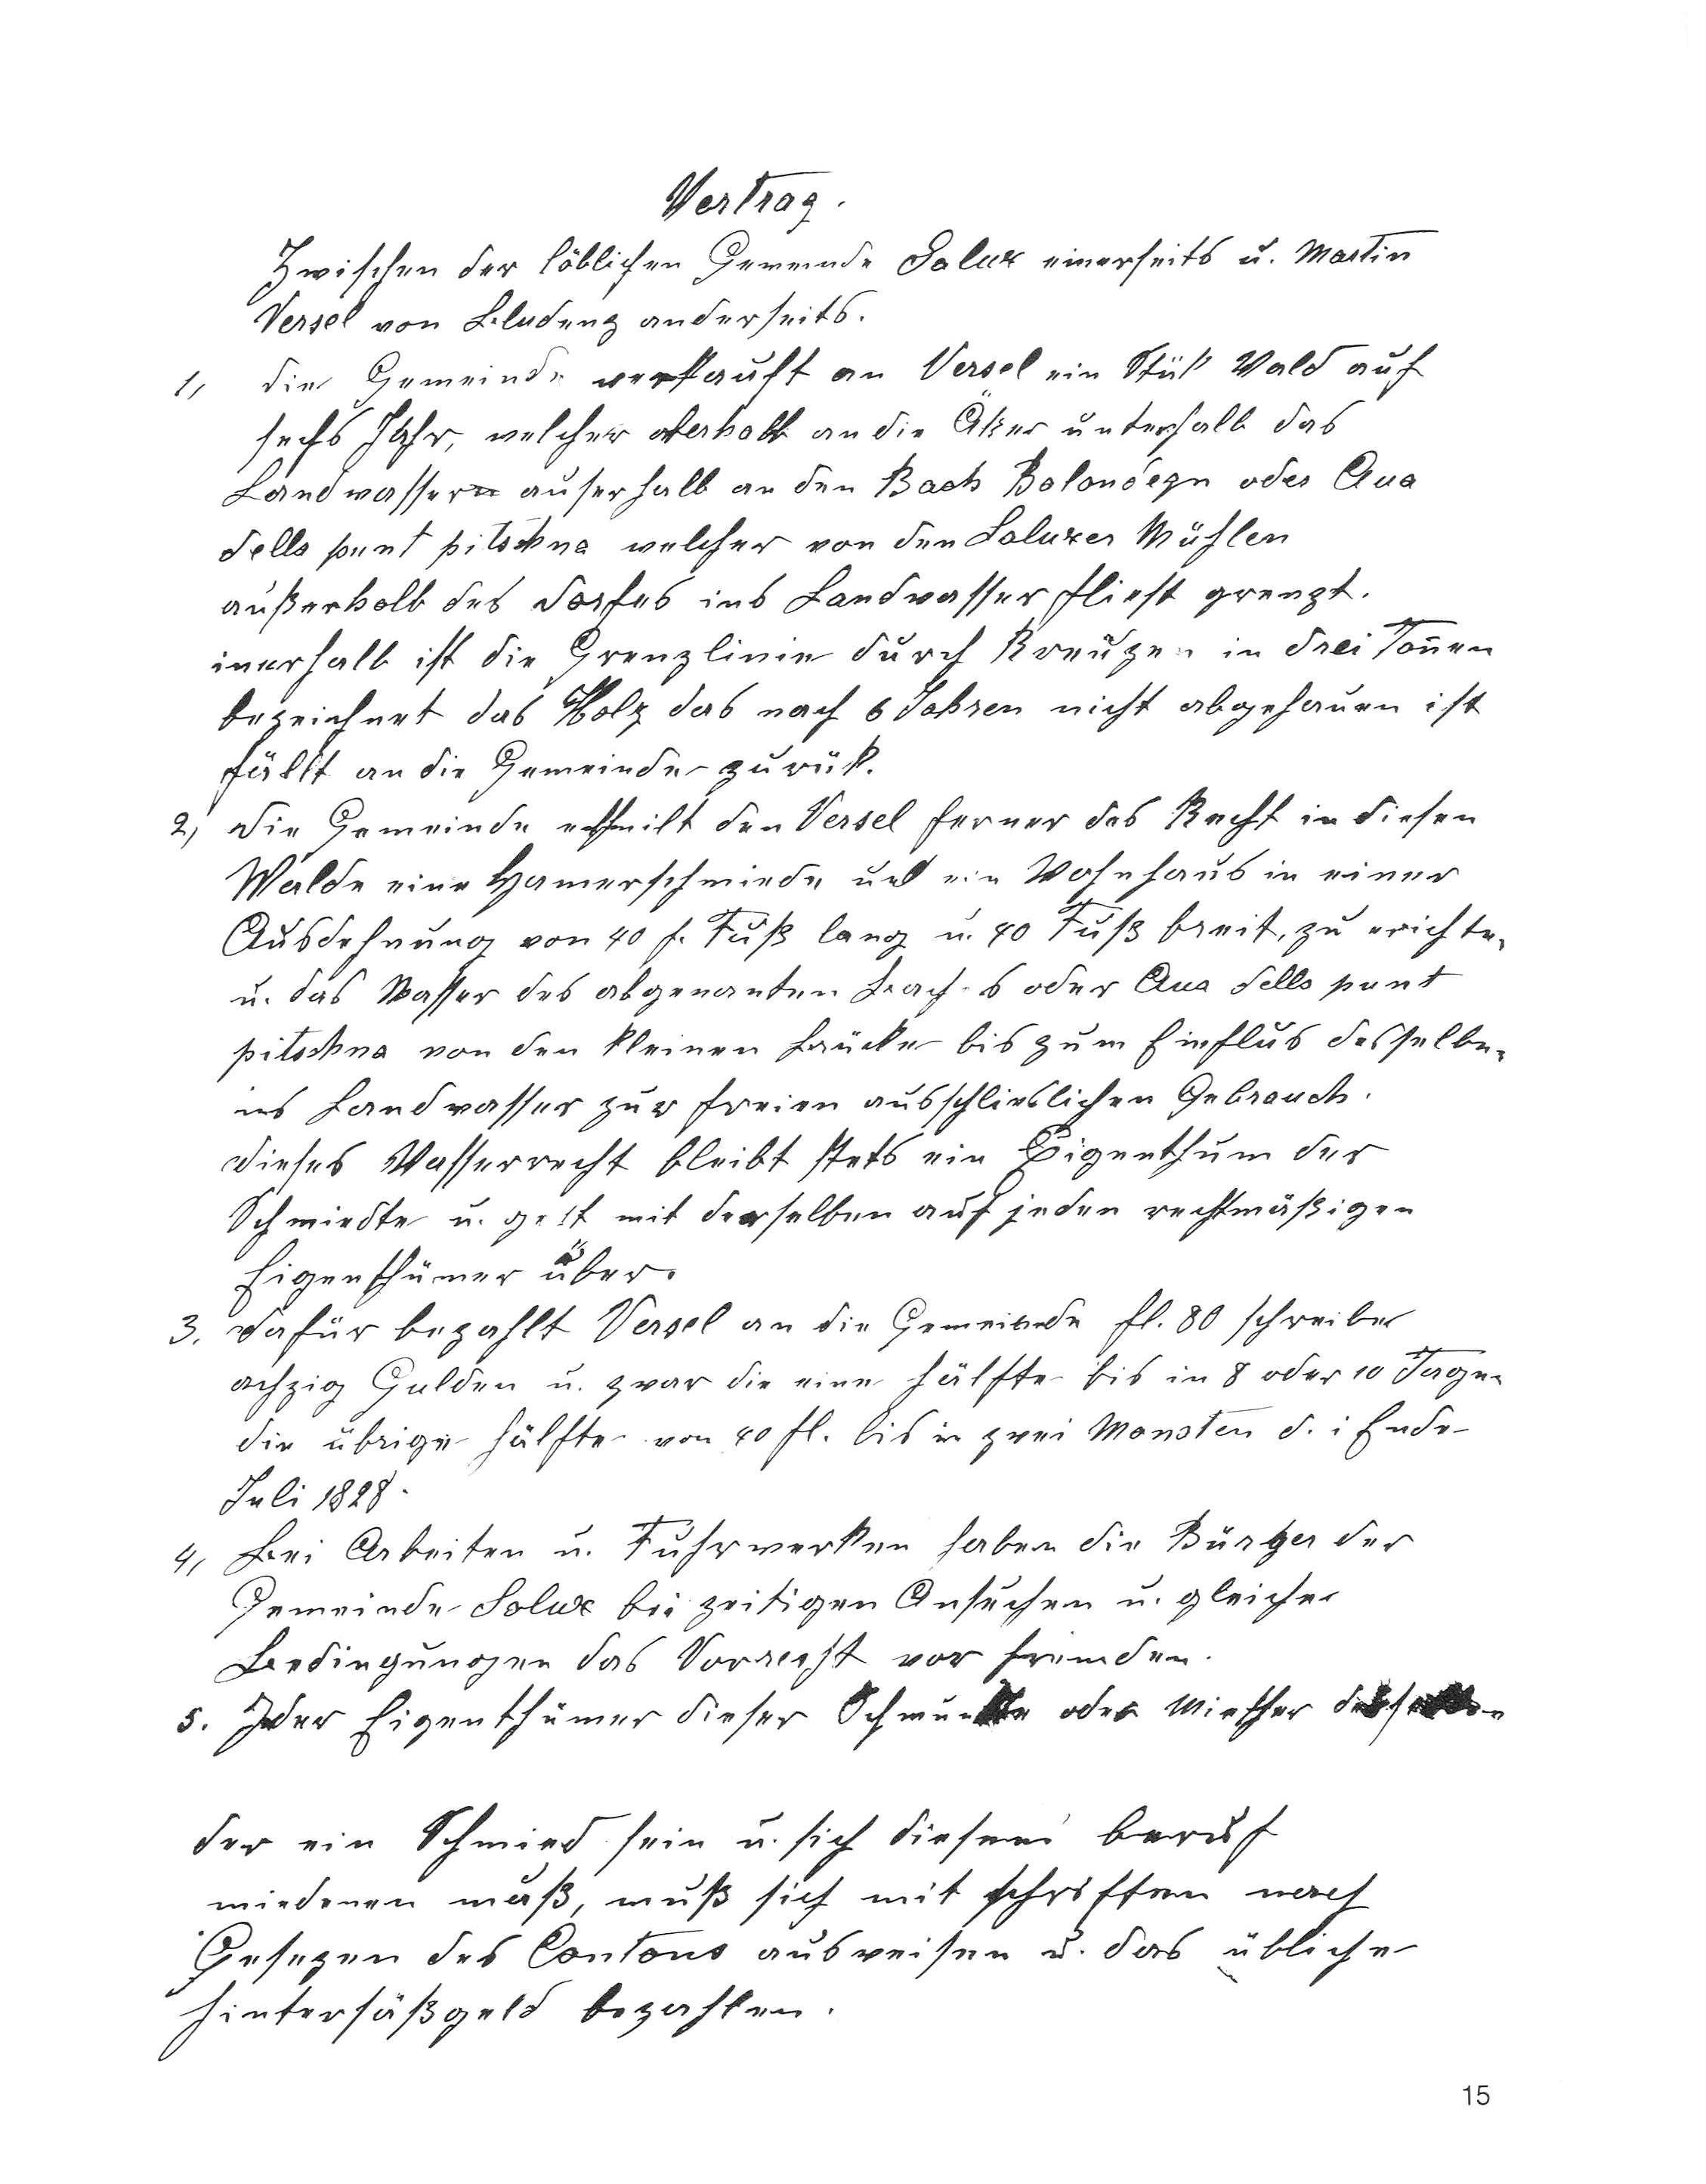 Vertrag.
Zwischen der löblichen Gemeinde Salux einerseits u. Martin
Versel von Bludenz anderseits.
1, die Gemeinde verkauft an Versel ein Stük Wald auf
sechs Jahr, welcher oberhalb an die Äker unterhalb das
Landwasser auserhalb an den Bach Balandegn oder Aua
della punt pitschna welcher von den Saluxer Mühlen
außerhalb des Dorfes ins Landwasser fliest grenzt.
inerhalb ist die Grenzlinie durch Kreuze in drei Tannen
bezeichnet das Holz das nach 6 Jahren nicht abgehauen ist
fällt an die Gemeinde zurük.
2, die Gemeinde ertheilt den Versel ferner das Recht in diesen
Walde eine Hamerschmiede und ein Wohnhaus in einer
Ausdehnung von 40 f. Fuß lang u. 40 Fuß breit, zu erichten
u. das Wasser des abgenanten Baches oder Aua della punt
pitschna von den kleinen Brücke bis zum Einflus desselben
ins Landwasser zur freien ausschlieslichen Gebrauch.
dieses Wasserrecht bleibt stets ein Eigenthum der
Schmiedte u. geht mit derselben auf jeden rechtmäßigen
Eigenthümer über.
3. dafür bezahlt Versel an die Gemeinde fl. 80 schreibe
achzig Gulden u. zwar die eine Hälfte bis in 8 oder 10 Tagen
die übrige Hälfte von 40 fl. bis in zwei Monaten d. i Ende
Juli 1828.
4, Bei Arbeiten u. Fuhrwerken haben die Bürger der
Gemeinde Salux bei zeitigen Ansuchen u. gleiche
Bedingungen das Vorrecht vor fremden.
5. Jeder Eigenthümer dieser Schmiedte oder Miether derselben
der ein Schmied sein u. sich diesem beruf
miedenen muß, muß sich mit schriften nach
Gesezen des Cantons ausweisen u. das übliche
Hintersäßgeld bezahlen.
15